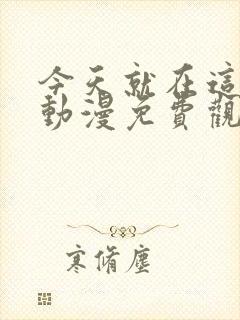 今天就在這
動漫免費觀
寒脩塵